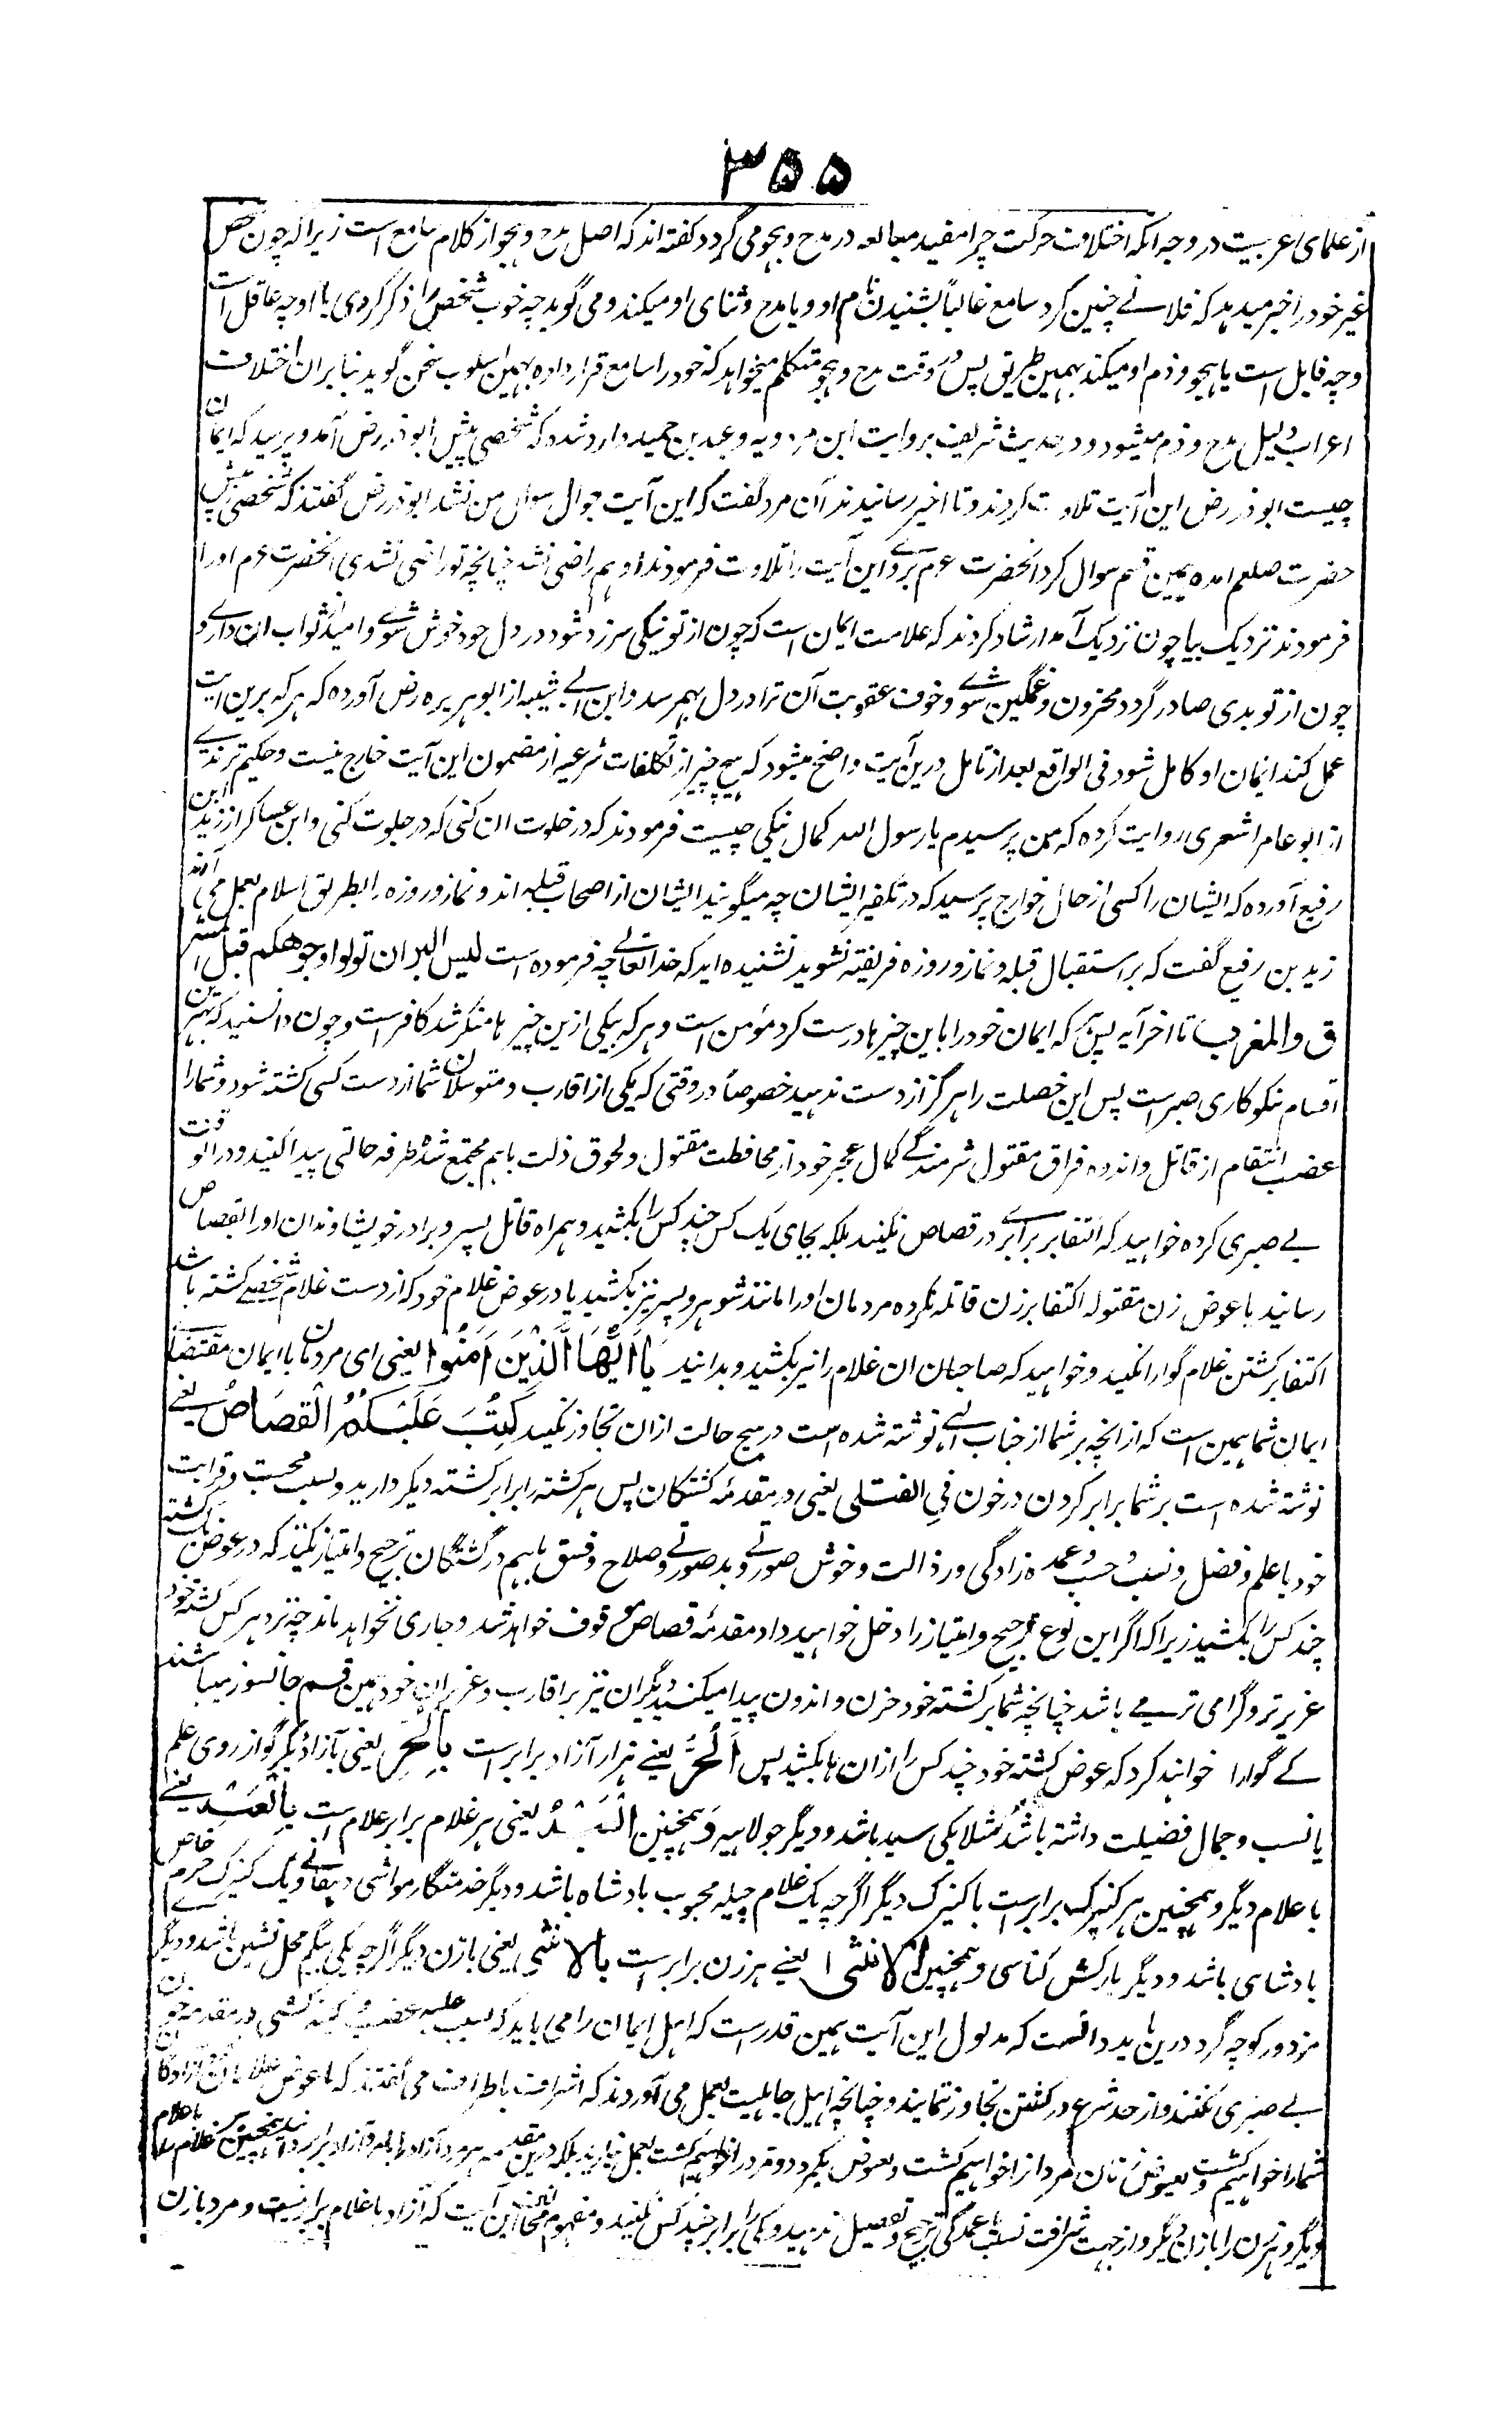 ۳۵۵
از علمای عربیت در وجه آنکه اختلاف حرکت چرا مفید مبالغه در مدح و هجو می گردد گفته اند که اصل مدح و هجو از کلام سامع است زیرا که چون شخص
غیر خود را خبر میدهد که فلانے چنین کرد سامع غالباً بشنیدن نام او و یا مدح و ثنای او میکند و می گوید چه خوب شخص را ذکر کردی یا او چه عاقل است
و چه قابل است یا هجو و ذم او میکند بهمین طریق پس وقت مدح و هجو متکلم میخواهد که خود را سامع قرار داده بهمین اسلوب سخن گوید بنابران اختلاف
اعراب دلیل مدح و ذم میشود و در حدیث شریف بروایت ابن مردویه و عبد بن حمید وارد شده که شخصی پیش ابوذر رض آمد و پرسید که ایمان
چیست ابوذر رض این آیت تلاوت کردند و تا اخیر رسانیدند آن مرد گفت که این آیت جوال سوال من نشد ابوذر رض گفتند که شخصی پیش
حضرت صلعم امده بهمین قسم سوال کرد انحضرت عم بروے این آیت را تلاوت فرمودند او هم راضی نشد چنانچه تو راضی نشدی انحضرت عم او را
فرمودند نزدیک بیا چون نزدیک آمد ارشاد کردند که علامت ایمان است که چون از تو نیکی سرزد شود در دل خود خوش شوے و امید ثواب ان دارے و
چون از تو بدی صادر گردد محزون و غمگین شوے و خوف عقوبت آن ترا در دل بهم رسد و ابن ابے شیبه از ابو هریره رض آورده که هر که برین ایت
عمل کند ایمان او کامل شود فی الواقع بعد از تامل درین آیت واضح میشود که هیچ چیز از تکلفات شرعیه از مضمون این آیت خارج نیست و حکیم ترمذے
از ابو عامر اشعری روایت کرده که من پرسیدم یا رسول الله کمال نیکی چیست فرمودند که در خلوت ان کنی که در جلوت کنی و ابن عساکر از زید ابن
رفیع آورده که ایشان را کسی از حال خوارج پرسید که در تکفیر ایشان چه میگوئید ایشان از اصحاب قبله اند و نماز و روزه را بطریق اسلام بعمل می آرند
زید بن رفیع گفت که بر استقبال قبله و نماز و روزه فریفته نشوید نشنیده اید که خداتعالے چه فرموده است لیس البر ان تولوا وجوهکم قبل المشر
ق والمغرب تا اخر آیه پس هر که ایمان خود را باین چیزها درست کرد مؤمن است و هر که بیکی ازین چیزها منکر شد کافر است و چون دانستید که بهترین
اقسام نیکوکاری صبر است پس این خصلت را هرگز از دست ندهید خصوصاً در وقتی که یکی از اقارب و متوسلان شما از دست کسی کشته شود و شما را
غضب انتقام از قاتل و اندوه فراق مقتول شرمندگے کمال عجز خود از محافظت مقتول و لحوق ذلت باهم مجتمع شده طرفه حالتی پیدا کنید و در انوقت
بے صبری کرده خواهید که اکتفا بر برابرے در قصاص نکنید بلکه بجای یک کس چند کس را بکشید و همراه قاتل پسر و برادر خویشاوندان او را بقصاص
رسانید یا عوض زن مقتوله اکتفا بر زن قاتله نکرده مردمان او را مانند شوهر و پسر نیز بکشید یا در عوض غلام خود که از دست غلام شخصے کشته باشد
اکتفا بر کشتن غلام گوارا نکنید و خواهید که صاحبان ان غلام را نیز بکشید و بدانید یَا اَیُّهَا الَّذِیْنَ اٰمَنُوْا یعنی ای مردمان با ایمان مقتضاے
ایمان شما همین است که از انچه بر شما از جناب الهی نوشته شده است در هیچ حالت ازان تجاوز نکنید کُتِبَ عَلَیْکُمُ الْقِصَاصُ یعنے
نوشته شده است بر شما برابر کردن در خون فی القتلی یعنی در مقدمه کشتگان پس هر کشته را برابر کشته دیگر دارید و بسبب محبت و قرابت
خود یا علم و فضل و نسب و حسب و عمده زادگی و رذالت و خوش صورتے و بد صورتے و صلاح و فسق باهم در کشتگان ترجیح و امتیاز نکنید که در عوض یک کشته
چند کس را بکشید زیرا که اگر این نوع ترجیح و امتیاز را دخل خواهید داد مقدمه قصاص موقوف خواهد شد و جاری نخواهد ماند چه نزد هر کس کشته خود
عزیزتر و گرامی تر مے باشد چنانچه شما بر کشته خود حزن و اندوه پیدا میکنید دیگران نیز بر اقارب و عزیزان خود همین قسم جانسوز میباشند
کے گوارا خواهند کرد که عوض کشته خود چند کس را ازان ها بکشید پس اَلْحُرُّ یعنے هر آزاد برابر است بِالْحُرِّ یعنی بآزاد دیگر گو از روی علم
یا نسب و جمال فضیلت داشته باشد مثلا یکی سید باشد و دیگر جولاهه و همچنین اَلْعَبْدُ یعنی هر غلام برابر غلام است بِالْعَبْدِ یعنے
با غلام دیگر و همچنین هر کنیزک برابر است با کنیزک دیگر اگرچه یک غلام چیله محبوب بادشاه باشد و دیگر خدمتگار مواشی دهقانے و یک کنیزک حرم خاص
بادشاهی باشد و دیگر بارکش کناسی و همچنین الانثی یعنے هر زن برابر است بالانثی یعنی با زن دیگر اگرچه یکی بیگم محل نشین باشد و دیگر
مزدور کوچه گرد درین باید دانست که مدلول این آیت همین قدر است که اهل ایمان را می باید که بسبب غلبه غضب و کینه کشی در مقدمه خون
بے صبری نکنند و از حد شرع در کشتن تجاوز ننمایند و چنانچه اهل جاهلیت بعمل می آوردند که اشراف باطراف می گفتند که ما عوض غلامان خود آزادگان
شما را خواهیم کشت و بعوض زنان مردان را خواهیم کشت و بعوض یکمرد دو مرد را خواهیم کشت بعمل نیارید بلکه درین مقدمه هر مرد آزاد را با مرد آزاد برابر دانید و همچنین غلام را با غلام
دیگر و هر زن را با زن دیگر و از جهت شرافت نسب یا عمدگی ترجیح و تفضیل ندهید و یکی را برابر چند کس نکنید و مفهوم مخالف این آیت که آزاد با غلام برابر نیست و مرد با زن